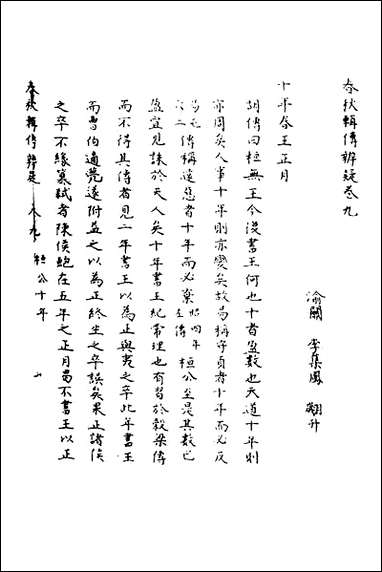 春秋輯傳辨疑卷九
渝關 李集鳳 翽升
十年春王正月
胡傳曰桓無王今復書王何也十者盈數也天道十年則
亦周矣人事十年則亦變矣故易稱守貞者十年而必反
易屯六二 傳稱遠惡者十年而必棄 昭四年左傳 桓公至是其數已
盈宜見誅於天人矣十年書王紀常理也有習於穀梁傳
而不得其傳者見二年書王以為正與夷之卒此年書王
而曹伯適薨遂附益之以為正終生之卒誤矣果正諸侯
之卒不緣篡弒者陳侯鮑在五年之正月曷不書王以正
春秋輯傳辨疑 卷九 桓公十年